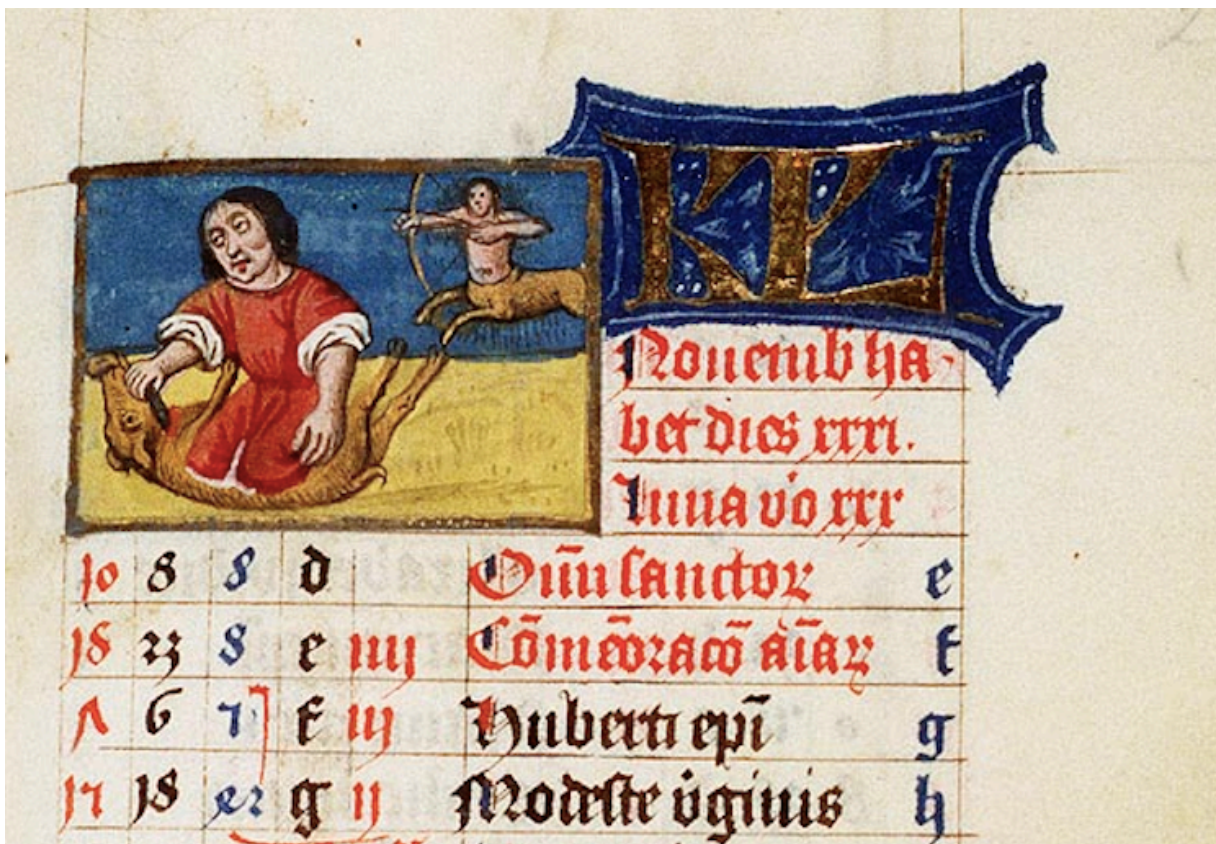 KL
Nouemb ha
bet dies xxxi.
Luna v̊o xxx
10 8 8 d Om̄iu sanctoꝝ e
18 23 8 e iiij Cōmēoracō aīaꝝ f
7 6 7 f iij Huberti epī g
17 18 g ij Modeste v̊ginis h